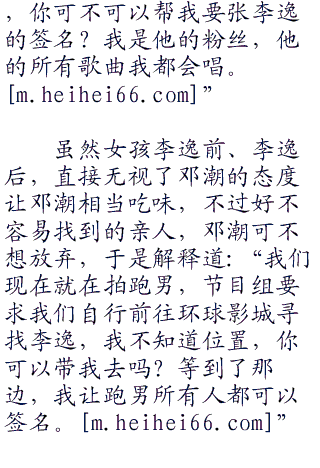 ，你可不可以帮我要张李逸
的签名？我是他的粉丝，他
的所有歌曲我都会唱。
[m.heihei66.com]”
虽然女孩李逸前、李逸
后，直接无视了邓潮的态度
让邓潮相当吃味，不过好不
容易找到的亲人，邓潮可不
想放弃，于是解释道：“我们
现在就在拍跑男，节目组要
求我们自行前往环球影城寻
找李逸，我不知道位置，你
可以带我去吗？等到了那
边，我让跑男所有人都可以
签名。[m.heihei66.com]”